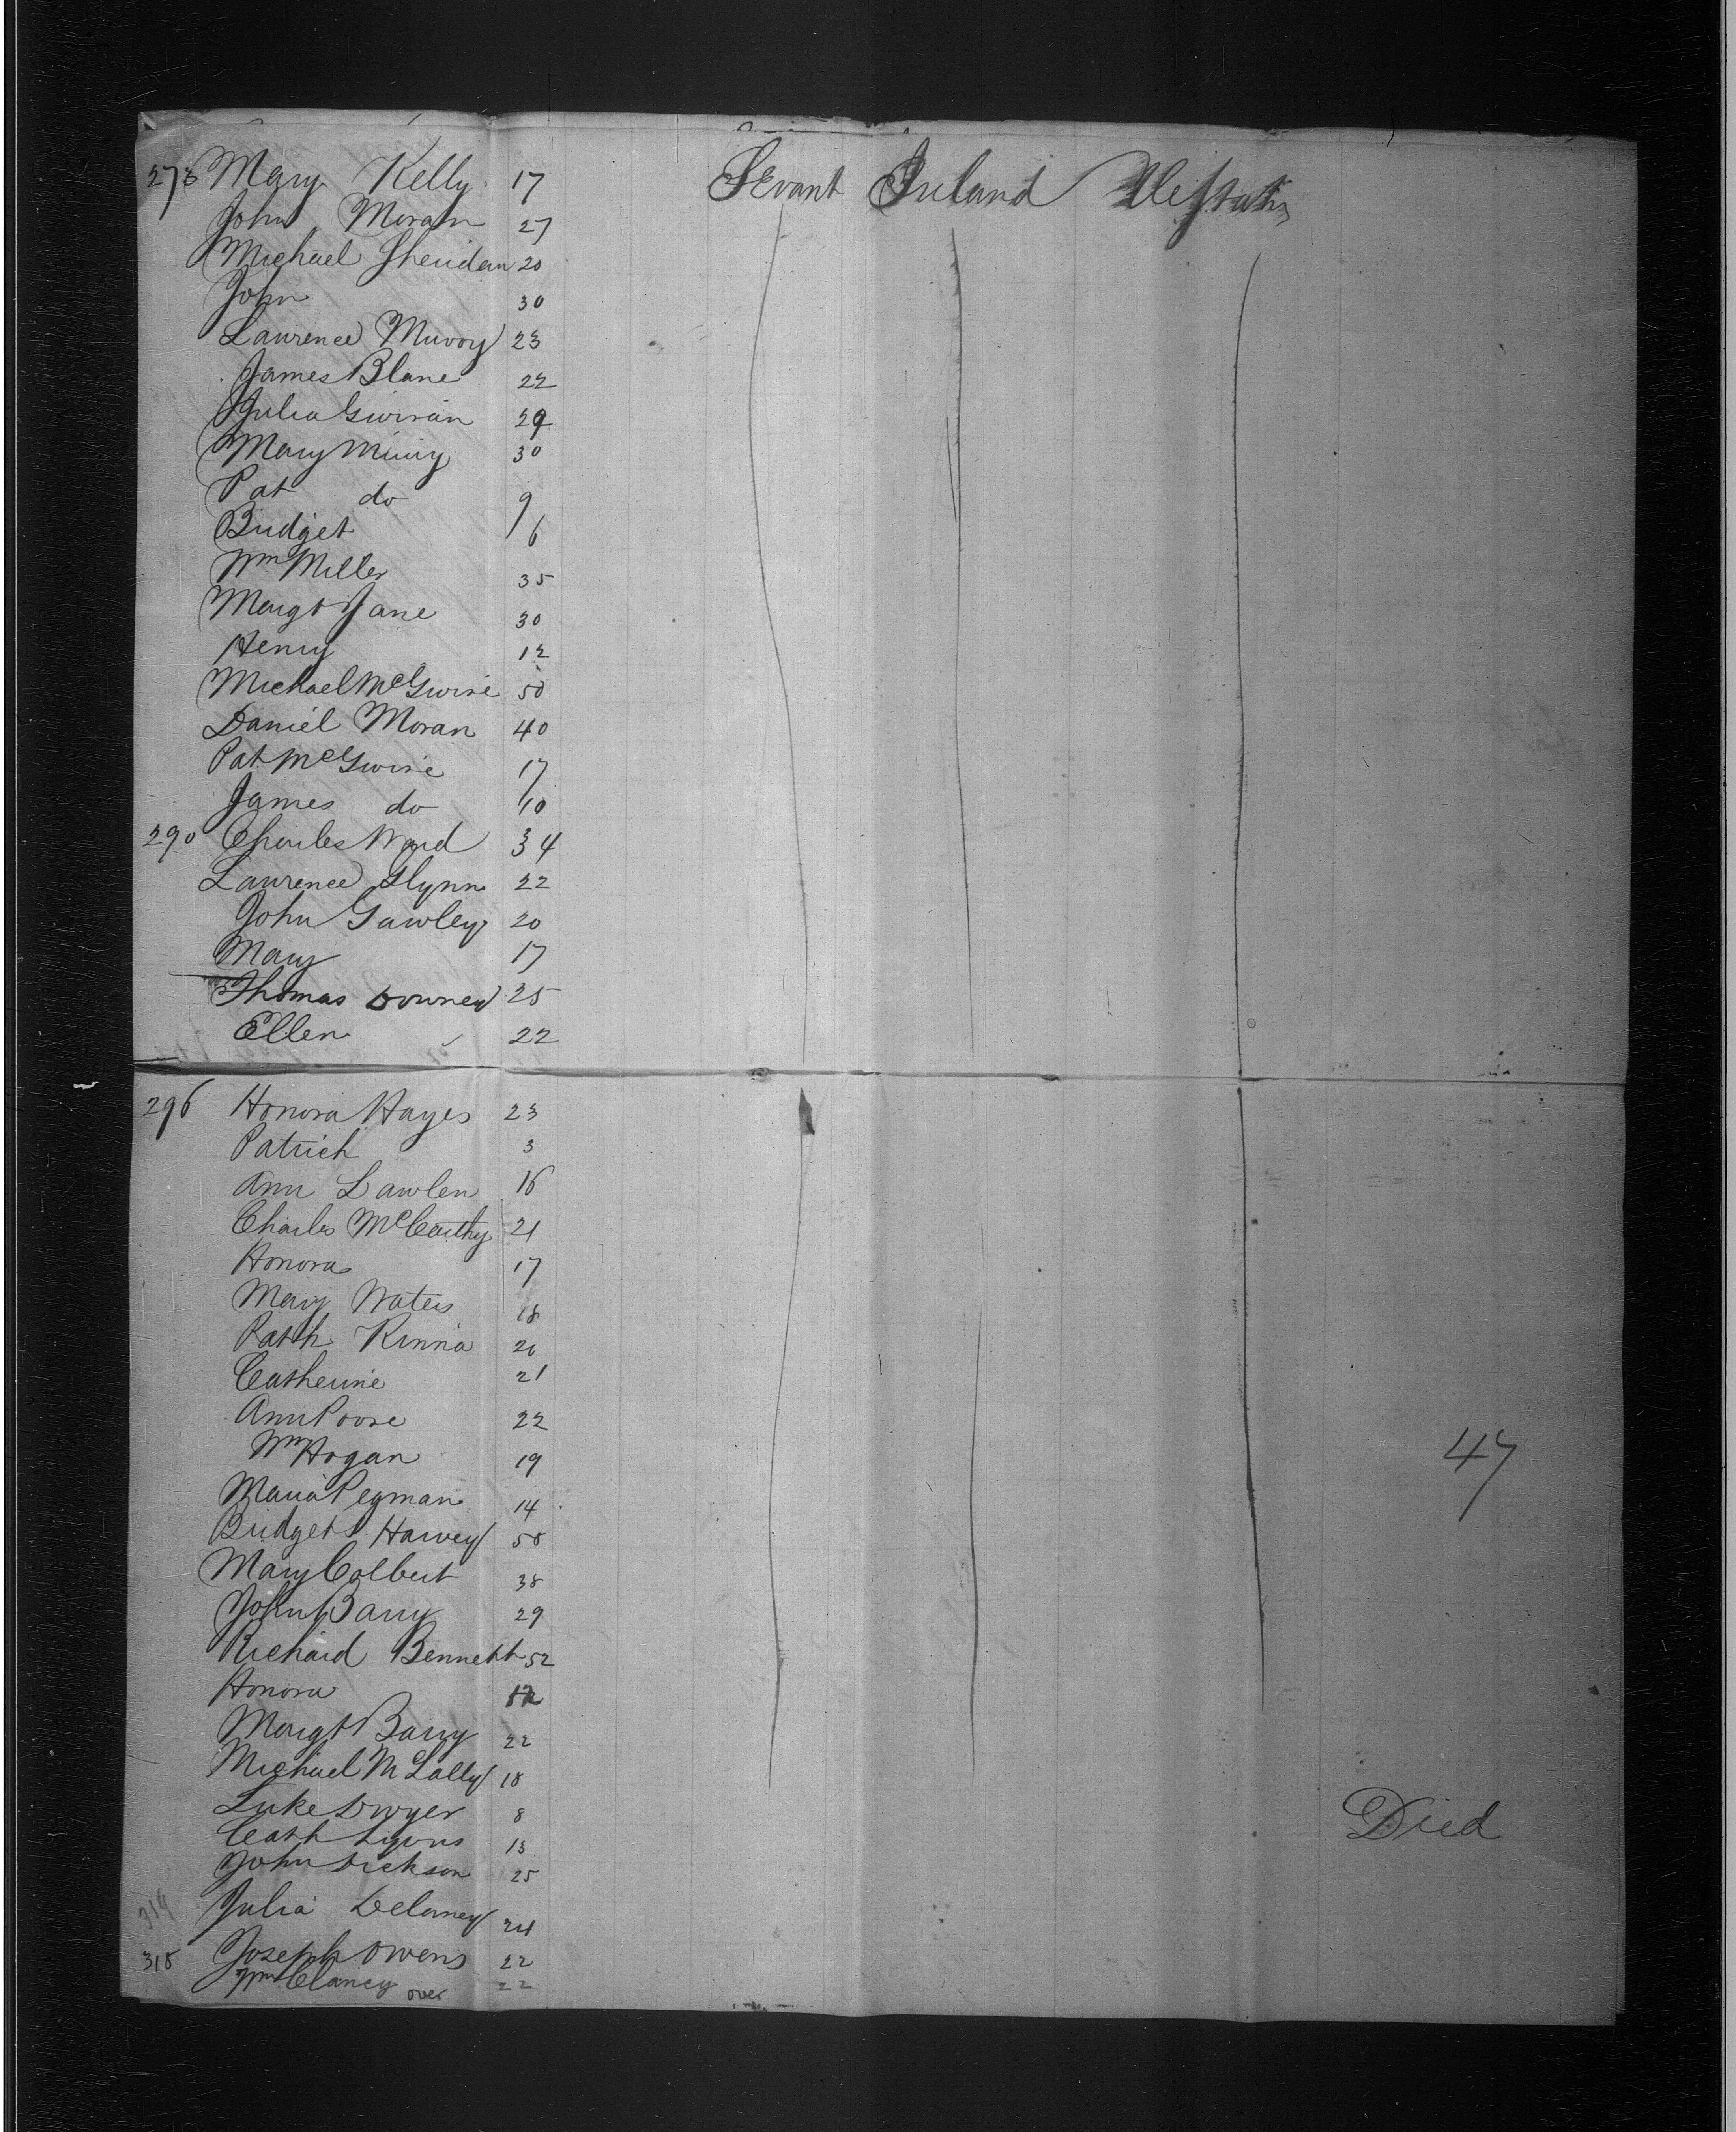 273 Mary Kelly 17 Servant Ireland U States
John Moran 27
Michael Sheridan 20
John 30
Laurence Muvoy 23
James Blane 22
Julia Guiran 29
Mary 30
Pat do 9
Bridget 6
Wm Miller 35
Margt Jane 30
Henry 12
Michael McGwire 50
Daniel Moran 40
Pat McGwire 17
James do 10
290 Charles Ward 34
Laurence Glynn 22
John Gawley 20
Mary 17
Thomas Downey 25
Ellen 22
296 Honora Hayes 23
Patrick 3
Ann Lawlen 16
Charles McCarthy 21
Honora 17
Mary Waters 18
Patk Kinna 20
Catherine 21
Ann Poore 22
Wm Hogan 19 47
Maria Pegman 14
Bridget Harvey 50
Mary Colbert 38
John Barry 29
Richard Bennett 52
Honora
Margt Barry 22
Michael McLally 18
Luke Dwyer 8 Died
Cath Lyons 13
John Dickson 25
319 Julia Delaney 24
318 Joseph Owens 22
Wm Clancy over 22